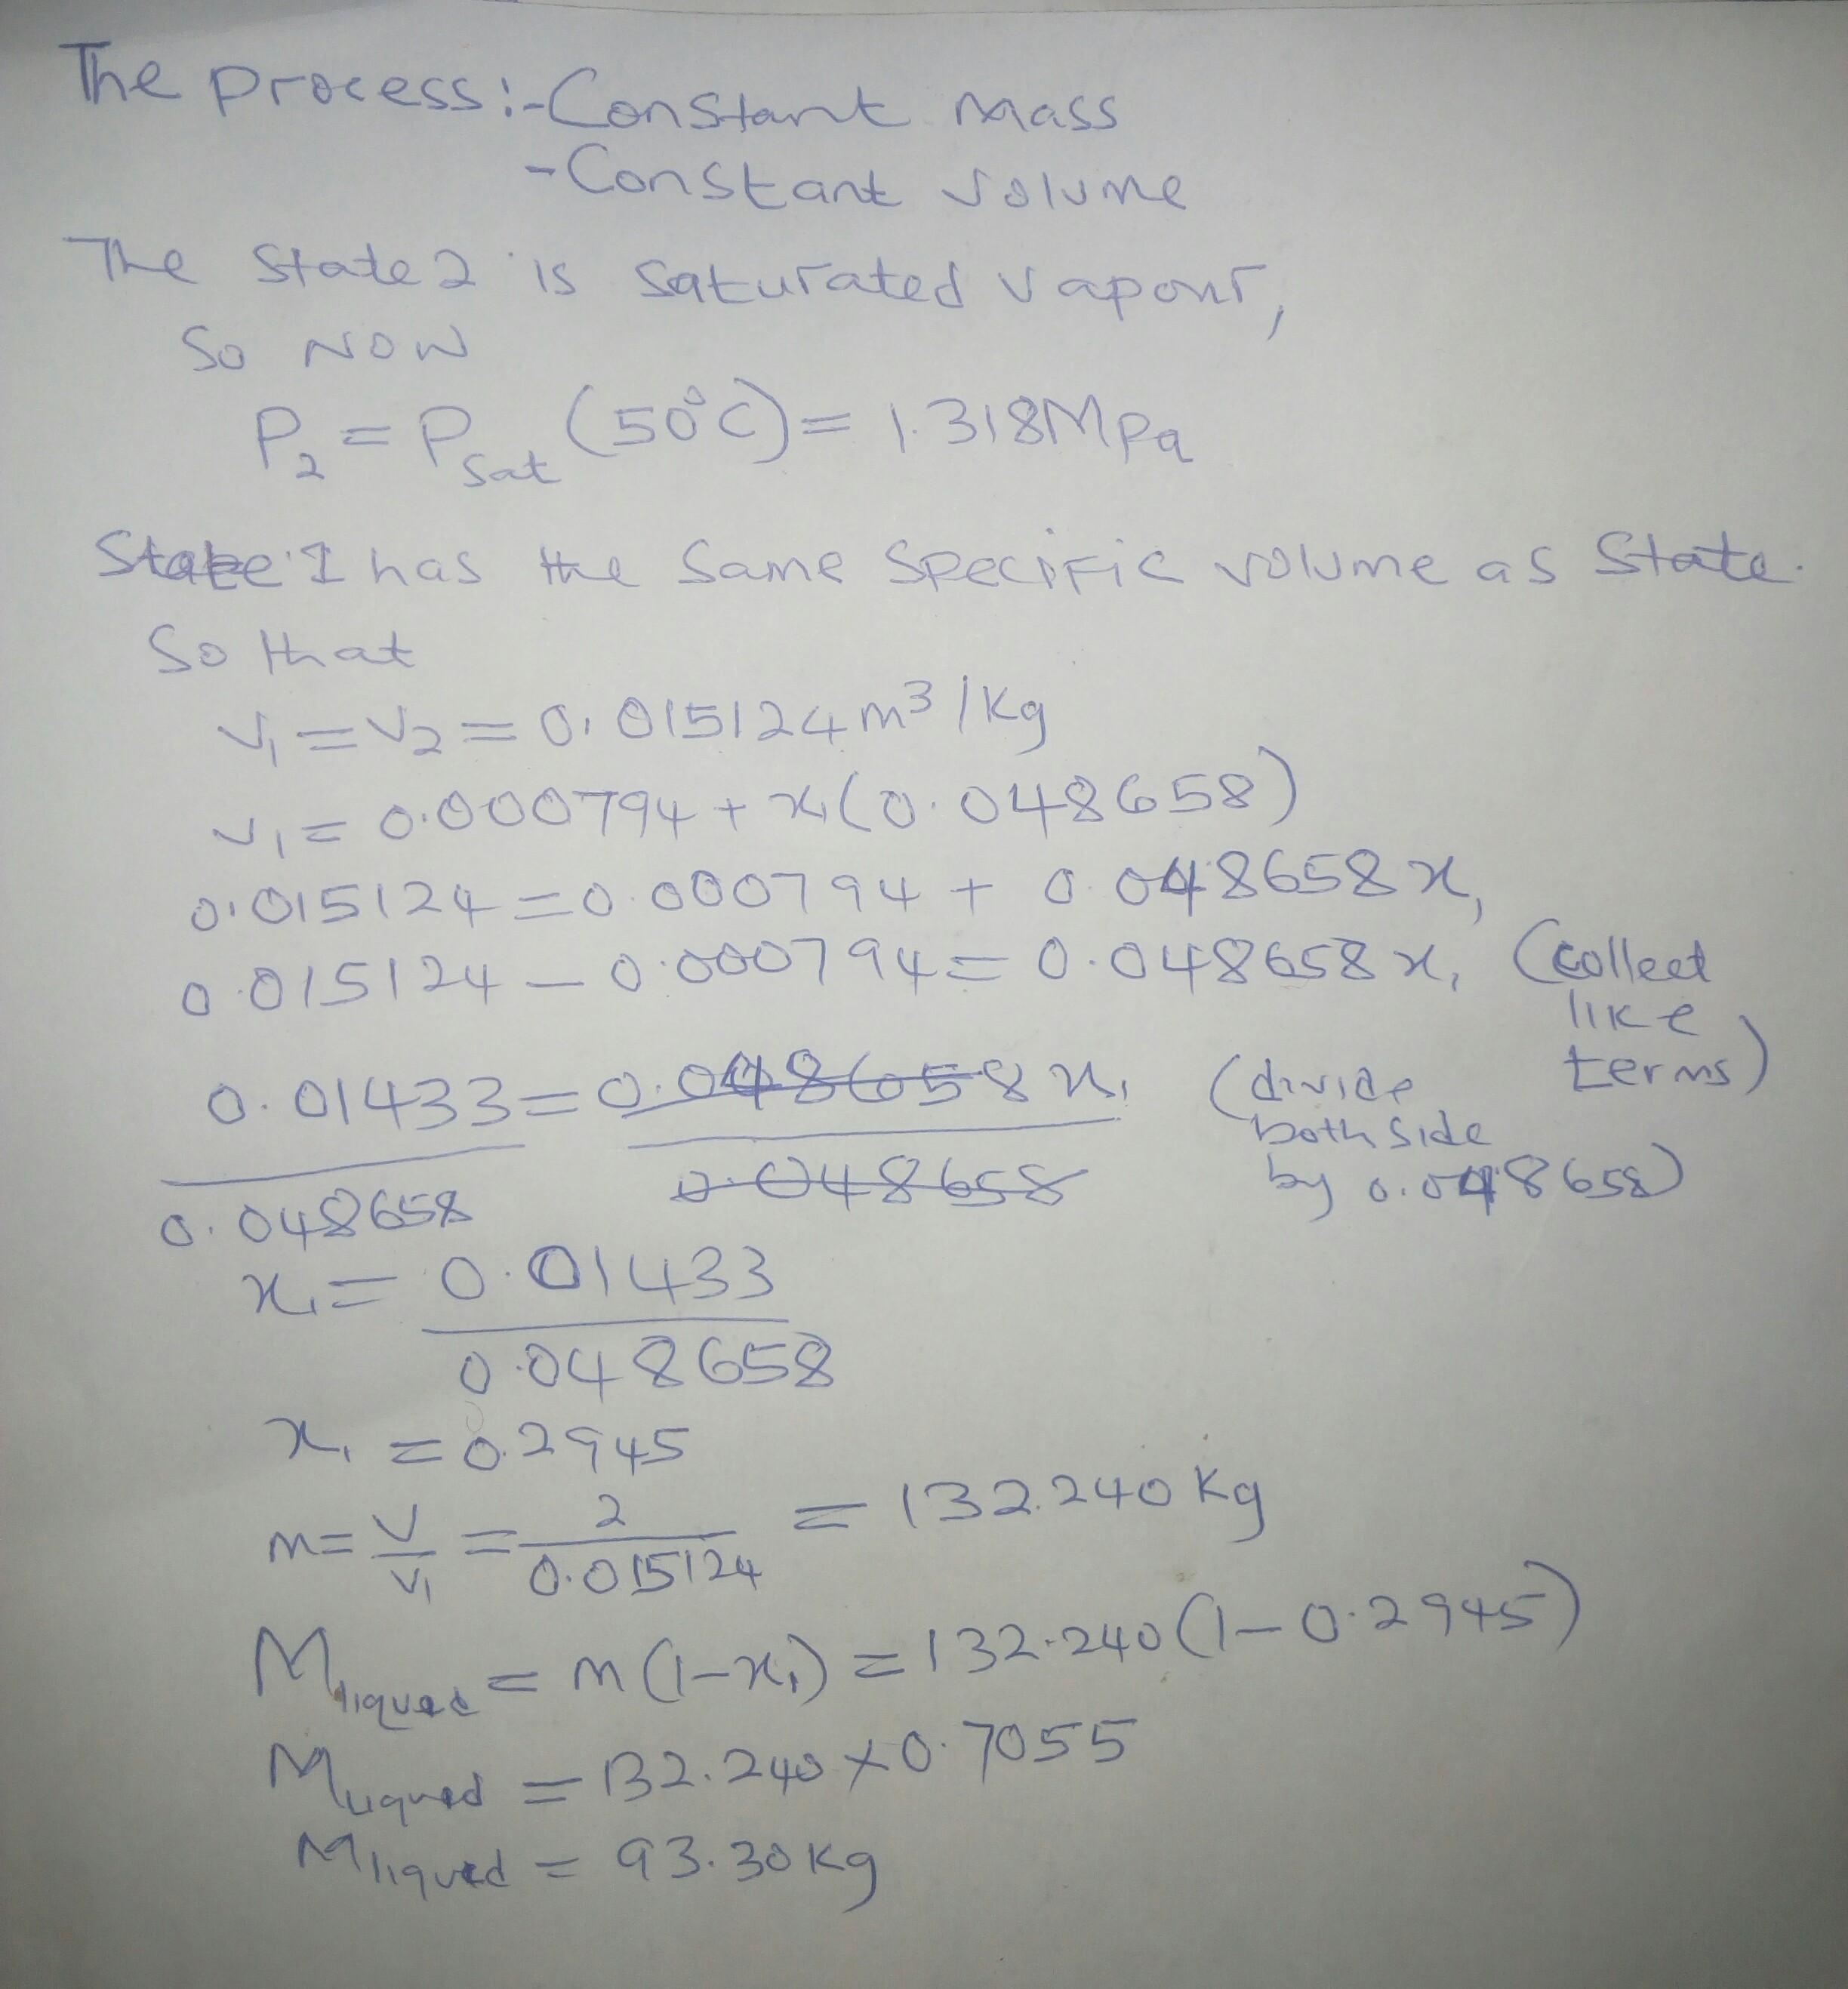 The process:-Constant mass
-Constant volume
The State 2 is Saturated vapour,
So NOW
P₂ = P_sat (50°C) = 1.318MPa
State 1 has the Same Specific volume as State.
So that
v₁ = v₂ = 0.015124 m³/Kg
v₁ = 0.000794 + x₁(0.048658)
0.015124 = 0.000794 + 0.048658x₁
0.015124 - 0.000794 = 0.048658x₁ (collect
like
terms)
0.01433 = 0.048658x₁ (divide
both side
by 0.048658)
0.048658 0.048658
x₁ = 0.01433
0.048658
x₁ = 0.2945
m = V/v₁ = 2/0.015124 = 132.240 Kg
M_liqued = m(1-x₁) = 132.240(1-0.2945)
M_liqued = 132.240 × 0.7055
M_liqued = 93.30Kg